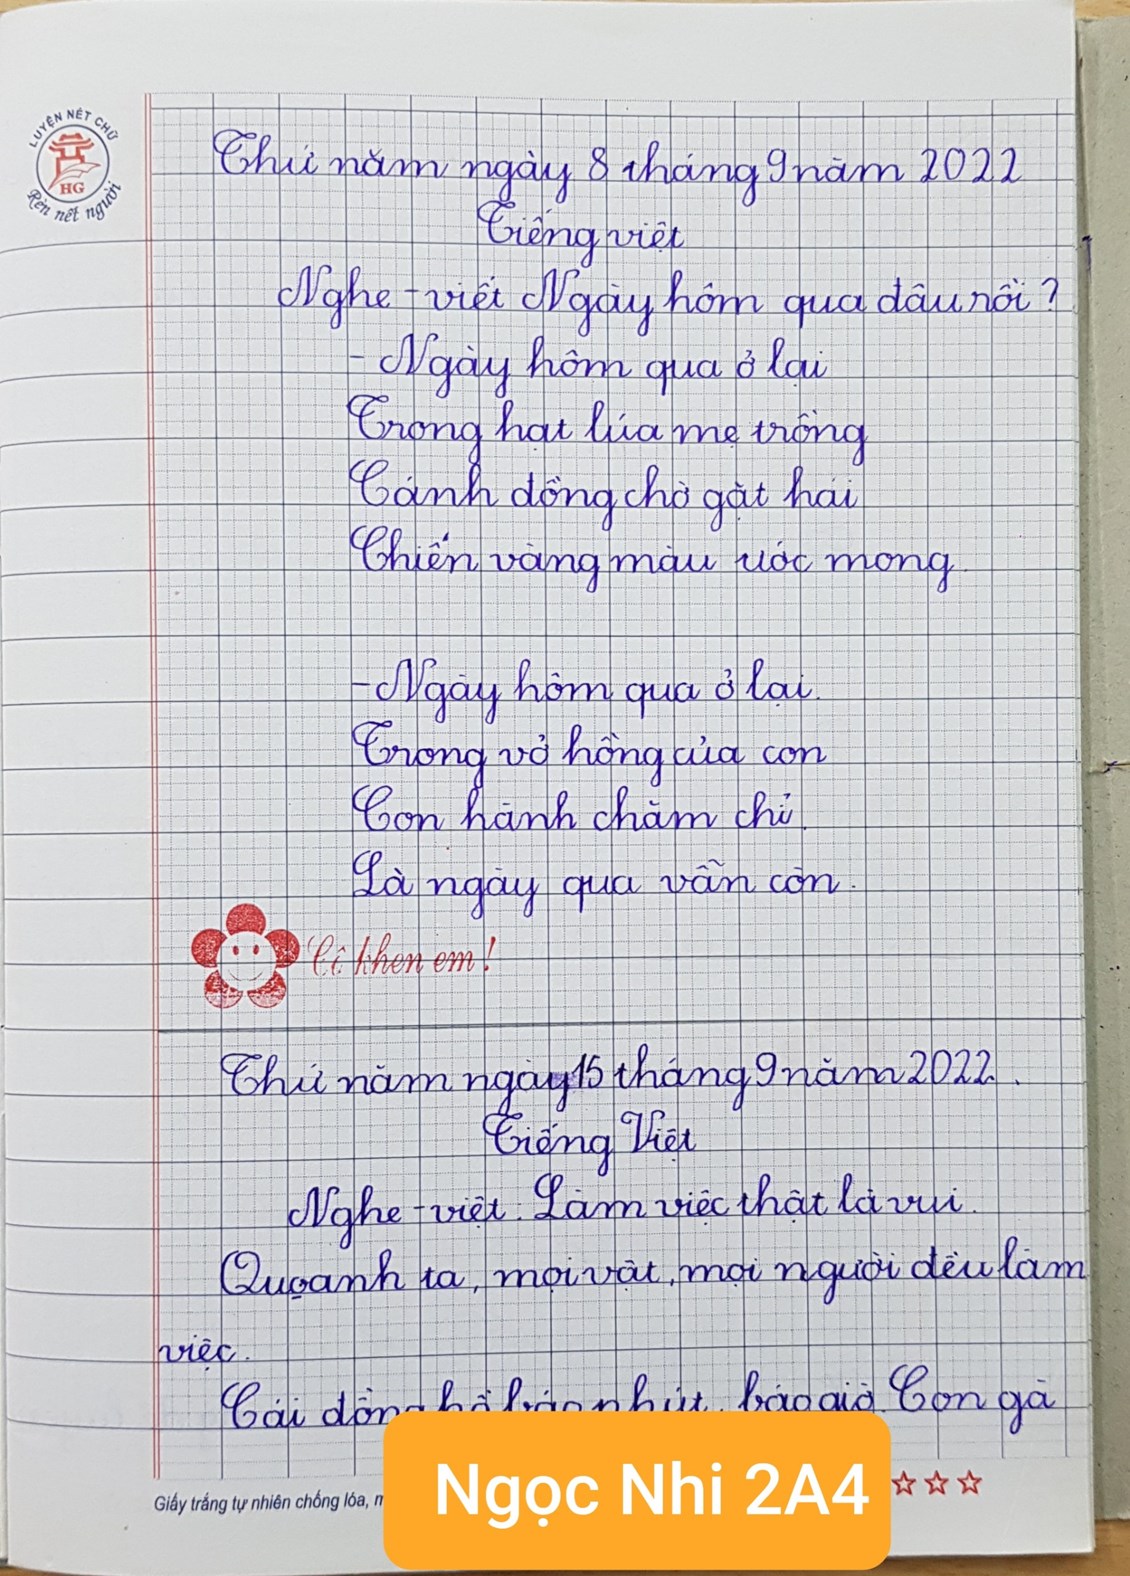 LUYỆN NÉT CHỮ
HG
Rèn nết người
Thứ năm ngày 8 tháng 9 năm 2022
Tiếng việt
Nghe - viết Ngày hôm qua đâu rồi?
- Ngày hôm qua ở lại
Trong hạt lúa mẹ trồng
Cánh đồng chờ gặt hái
Chiến vàng màu ước mong.
- Ngày hôm qua ở lại.
Trong vở hồng của con
Con hành chăm chỉ.
Là ngày qua vẫn còn.
Cô khen em!
Thứ năm ngày 15 tháng 9 năm 2022.
Tiếng Việt
Nghe - viết. Làm việc thật là vui.
Quoanh ta, mọi vật, mọi người đều làm
việc.
Cái đồng hồ báo phút, báo giờ. Con gà
Giấy trắng tự nhiên chống lóa,
Ngọc Nhi 2A4